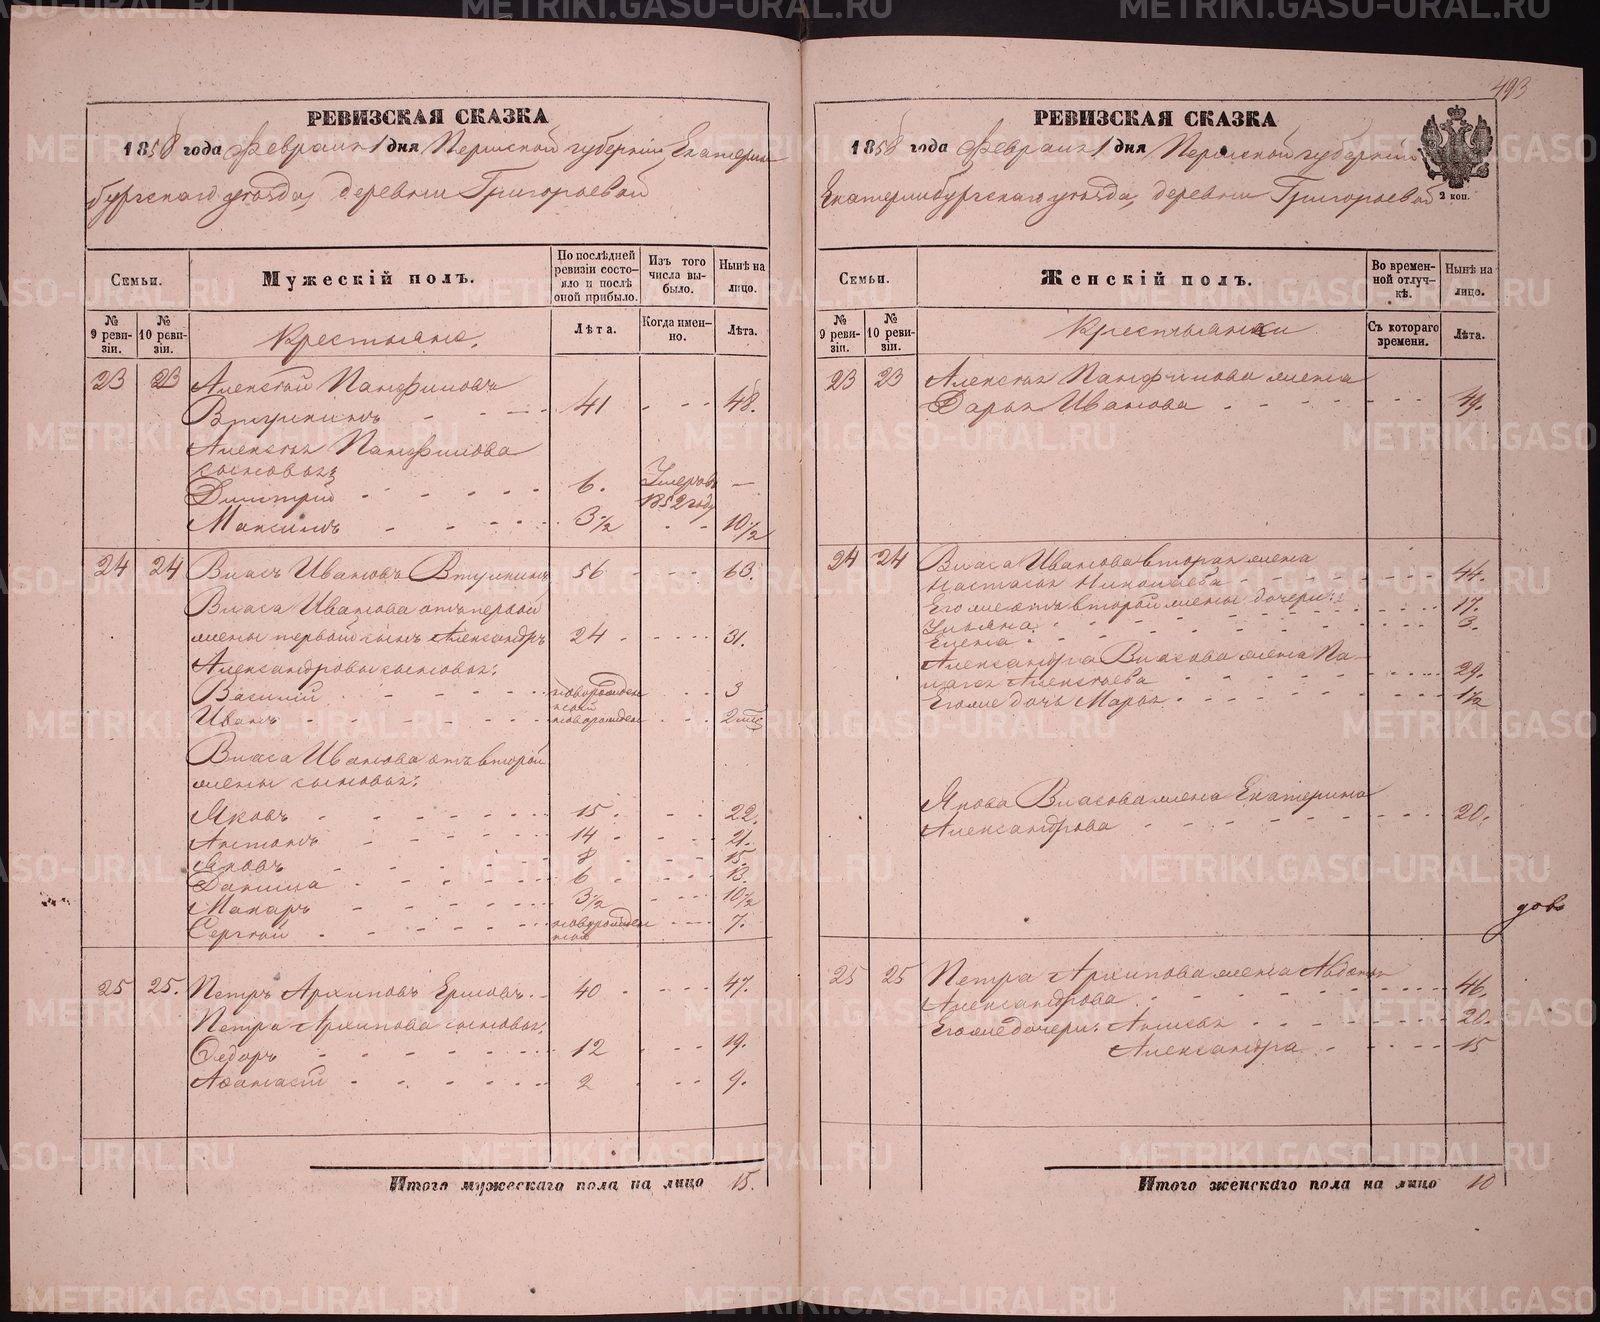 493
РЕВИЗСКАЯ СКАЗКА
1858 года Февраля 1 дня Пермской губернии Екатерин
бургскаго уезда, деревни Григорьевой
Семьи.
Мужескій полъ.
По послѣдней ревизіи состояло и послѣ оной прибыло.
Изъ того числа выбыло.
Нынѣ на лицо.
№ 9 ревизіи.
№ 10 ревизіи.
Крестьяне.
Лѣта.
Когда именно.
Лѣта.
23 23 Алексѣй Панфиловъ
Втулкинъ 41 48.
Алексѣя Панфилова
сыновья:
Дмитрій 6. Умеръ въ 1852 году —
Максимъ 3½ 10½
24 24 Власъ Ивановъ Втулкинъ 56 63.
Власа Иванова отъ первой
жены первой сынъ Александръ 24 31.
Александровы сыновья:
Василій новорожденной 3
Иванъ новорожден 2 мѣс
Власа Иванова отъ второй
жены сыновья:
Яковъ 15 22.
Антонъ 14 21.
Яковъ 8 15.
Данила 6 13.
Макаръ 3½ 10½
Сергѣй новорожден 7.
25 25. Петръ Архиповъ Ершовъ 40 47.
Петра Архипова сыновья:
Ѳедоръ 12 19.
Афанасій 2 9.
Итого мужескаго пола на лицо 15.
РЕВИЗСКАЯ СКАЗКА
1858 года Февраля 1 дня Пермской губерніи
Екатеринбургскаго уезда, деревни Григорьевой
2 коп.
Семьи.
Женскій полъ.
Во временной отлучкѣ.
Нынѣ на лицо.
№ 9 ревизіи.
№ 10 ревизіи.
Крестьянки
Съ котораго времени.
Лѣта.
23 23 Алексѣя Панфилова жена
Дарья Иванова 49.
24 24 Власа Иванова вторая жена
Настасья Николаева 44.
Его же отъ второй жены дочери:
Ульяна 17.
Елена 3.
Александра Власова жена Пе-
лагея Алексѣева 29.
Его же дочь Марья 1½
Якова Власова жена Екатерина
Александрова 20.
дово
25 25 Петра Архипова жена Авдотья
Александрова 46.
Его же дочери: Анисья 20.
Александра 15
Итого женскаго пола на лицо 10
METRIKI.GASO-URAL.RU